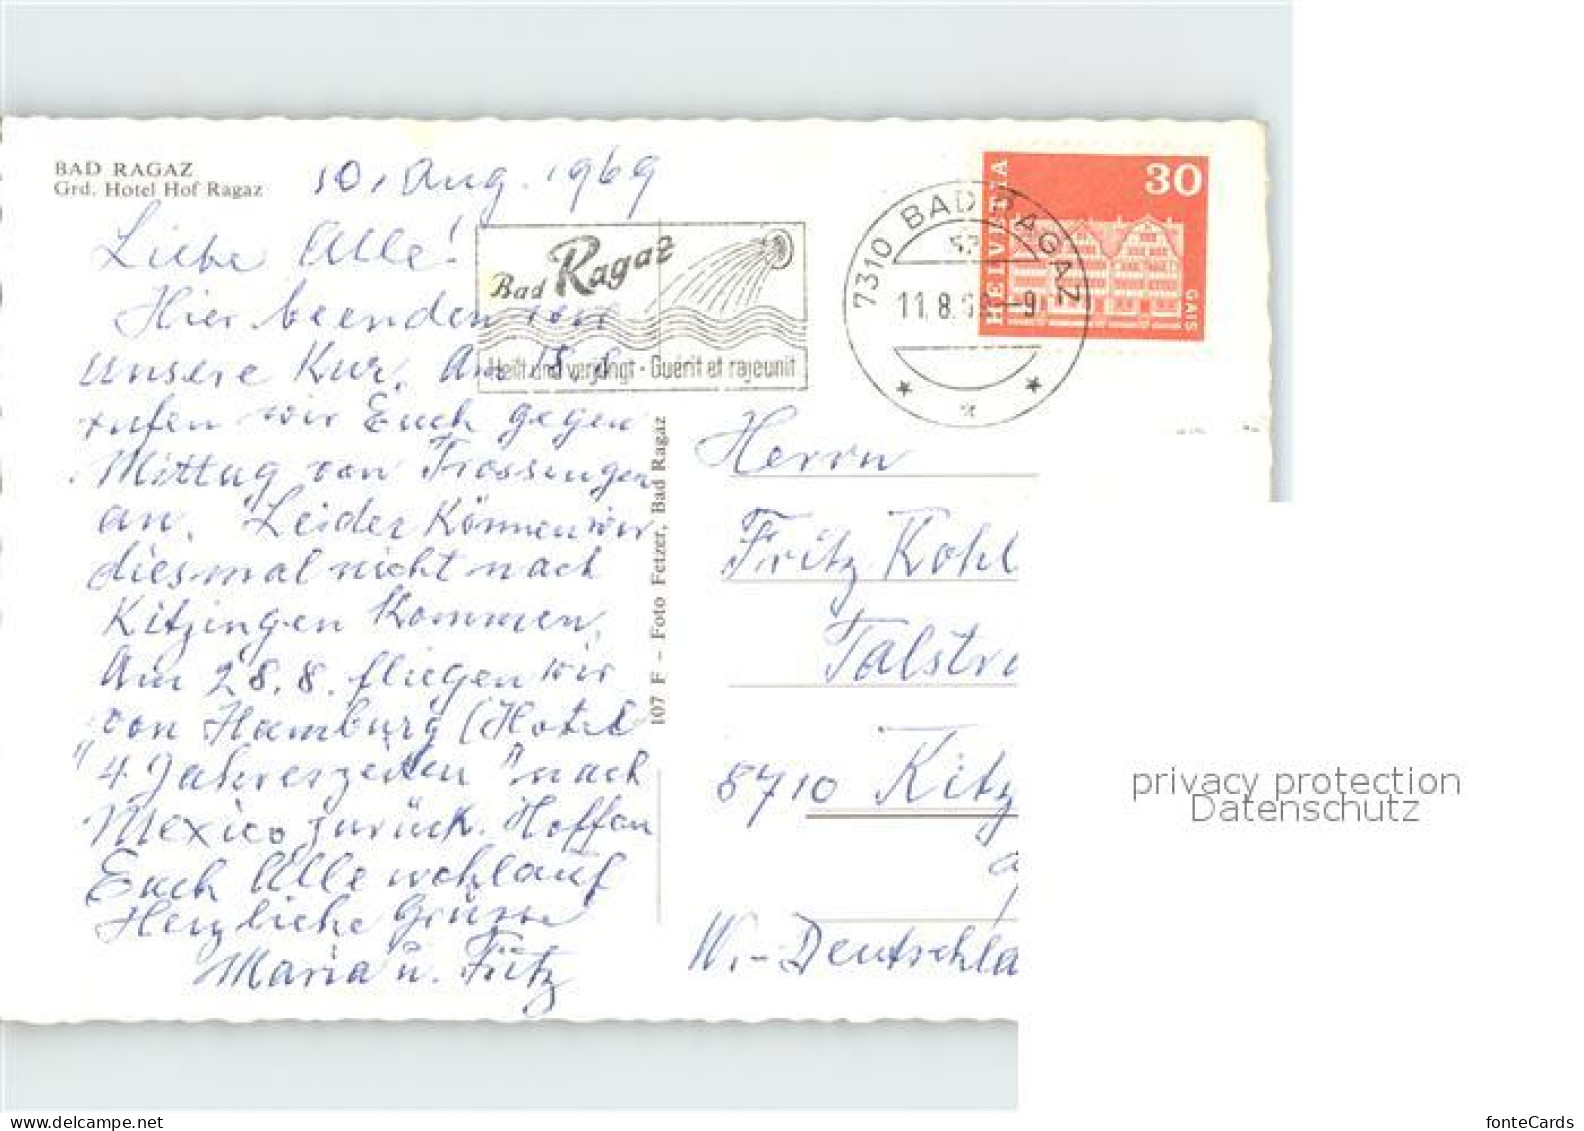 BAD RAGAZ
Grd. Hotel Hof Ragaz
10. Aug. 1969
Liebe Alle!
Hier beenden wir
unsere Kur. Am 15. d
rufen wir Euch gegen
Mittag von Trossingen
an. Leider können wir
diesmal nicht nach
Kitzingen kommen.
Am 28.8. fliegen wir
von Hamburg (Hotel
"4 Jahreszeiten" nach
Mexico zurück. Hoffen
Euch Alle wohlauf
Herzliche Grüsse
Maria u. Fritz
107 F – Foto Fetzer, Bad Ragaz
Bad Ragaz
Heilt und verjüngt - Guérit et rajeunit
7310 BAD RAGAZ
11.8.69-9
HELVETIA
30
GAIS
Herrn
Fritz Kohl
Talstr
8710 Kitz
a/
W.-Deutschla
privacy protection
Datenschutz
www.delcampe.net
fonteCards